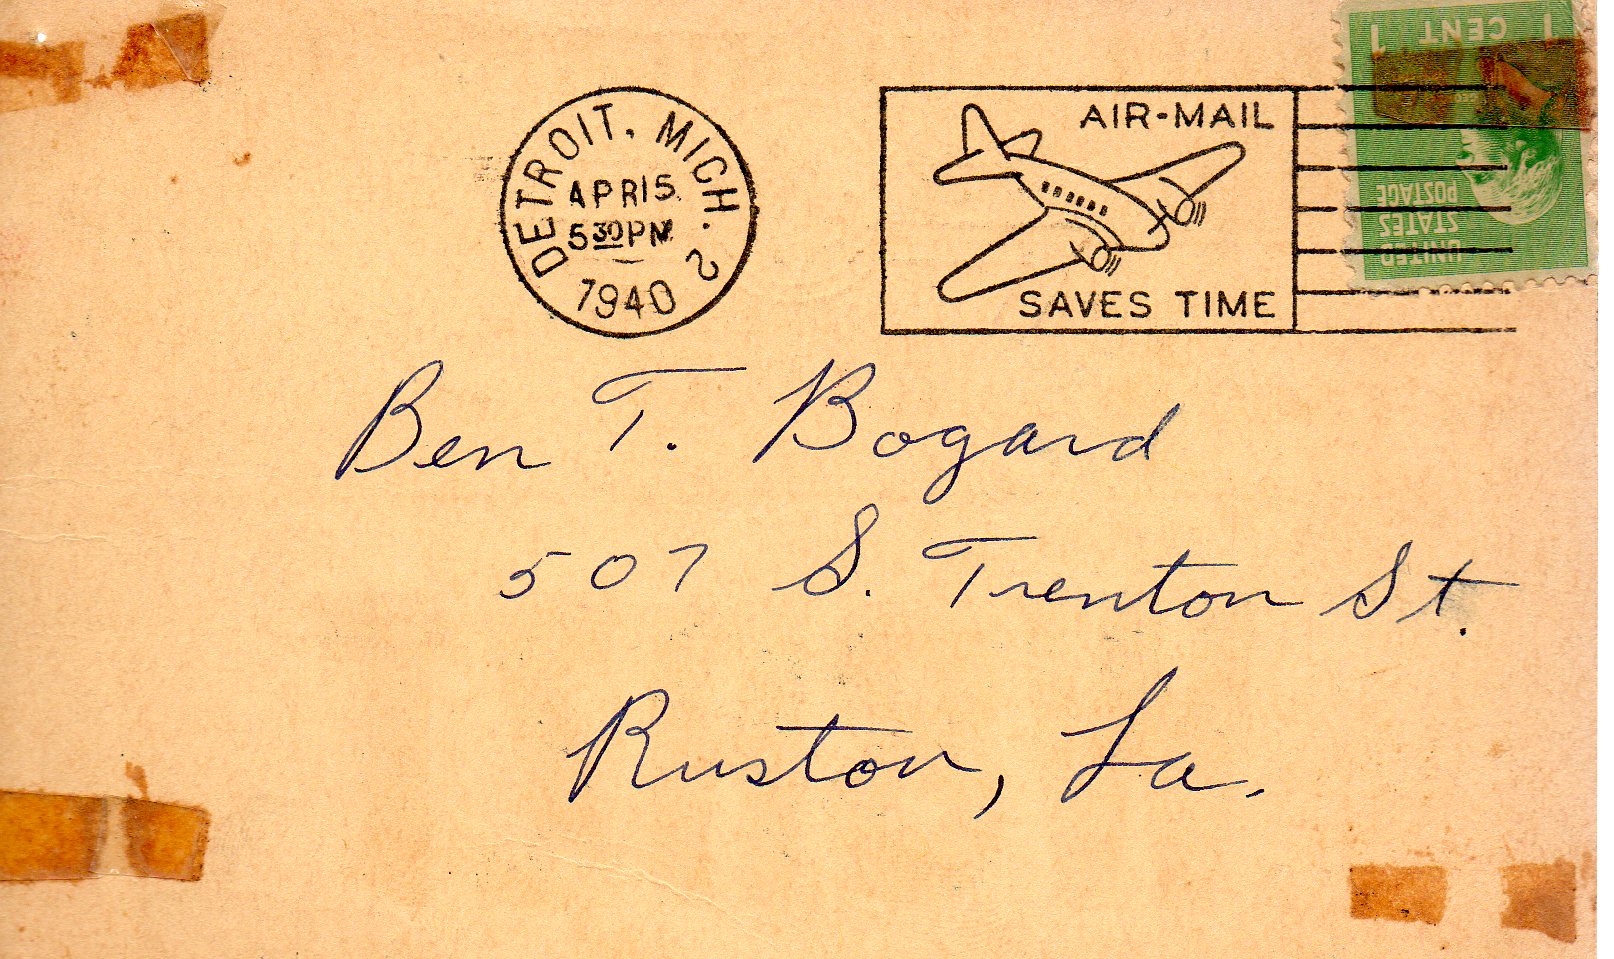 DETROIT, MICH. 2
APR 15
5 30 PM
1940
AIR-MAIL
SAVES TIME
1 CENT 1
UNITED
STATES
POSTAGE
Ben T. Bogard
507 S. Trenton St.
Ruston, La.